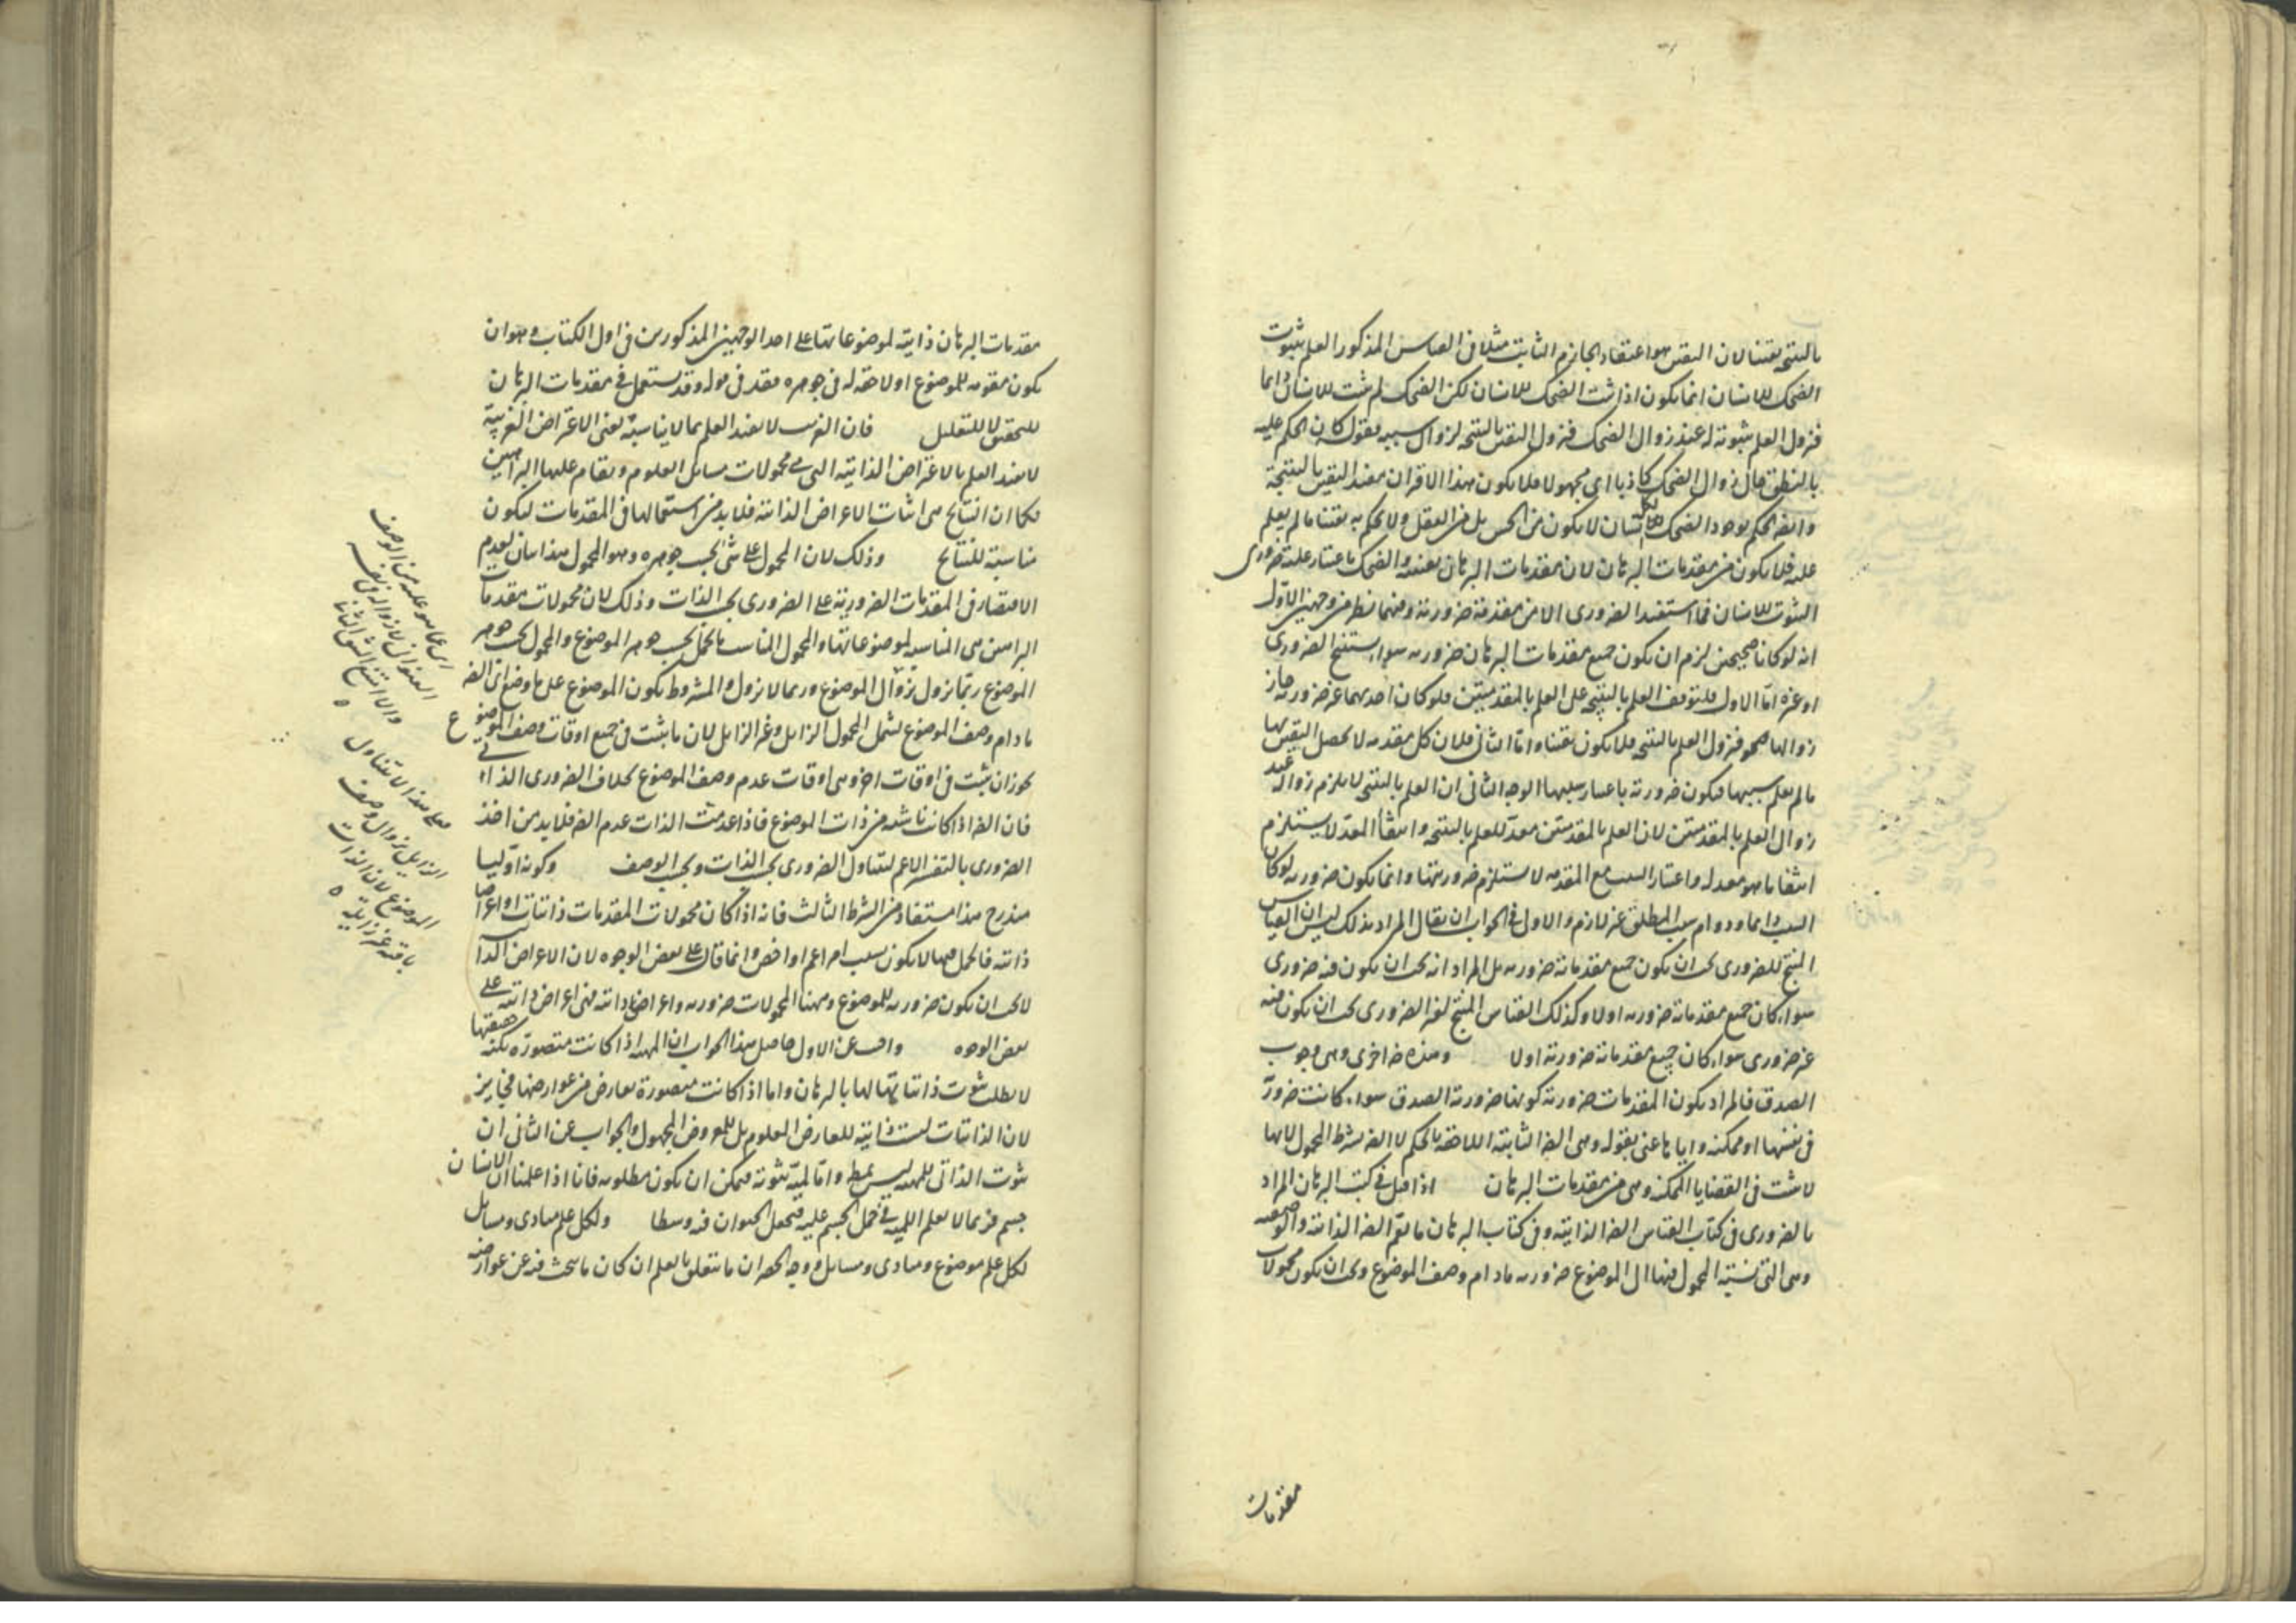 بالنتیجة یقینا لان الیقین هو اعتقاد الجازم الثابت مثلا فی القیاس المذکور العلم بثبوت
الضحک للانسان انما یکون اذا ثبت الضحک للانسان لکن الضحک لم یثبت للانسان دائما
فیزول العلم بثبوته له عند زوال الضحک فیزول الیقین بالنتیجة لزوال سببه فیقول کان الحکم علیه
بالنطق حال زوال الضحک کاذبا ای مجهولا فلا یکون هذا الاقتران مفید الیقین بالنتیجة
وایضا الحکم بوجود الضحک للانسان لا یکون من الحس بل من العقل ولا یحکم به یقینا ما لم یعلم
علیه فلا یکون من مقدمات البرهان لان مقدمات البرهان یقینیه والضحک باعتبار علیة ضروری
الثبوت للانسان فما استفید الضروری الا من مقدمة ضروریة وفیهما نظر من وجهین الاول
انه لو کانا صحیحین لزم ان یکون جمیع مقدمات البرهان ضروریه سواء یستنتج الضروری
او غیره اما الاول فلتوقف العلم بالنتیجة علی العلم بالمقدمتین فلو کان احدیهما غیر ضروریة جاز
زوالها فیزول العلم بالنتیجة فلا یکون یقینا واما الثانی فلان کل مقدمه لا یحصل الیقین بها
ما لم یعلم سببها فیکون ضروریة باعتبار سببها الوجه الثانی ان العلم بالنتیجة لا یلزم زواله عند
زوال العلم بالمقدمتین لان العلم بالمقدمتین معد للعلم بالنتیجة وانتفاء المعد لا یستلزم
انتفاء ما هو معد له واعتبار السبب مع المقدمه لا یستلزم ضروریتها وانما یکون ضروریه لو کان
السبب دائما ودوام سبب المطلق غیر لازم والاولی فی الجواب ان یقال المراد بذلک لیس ان القیاس
المنتج للضروری یجب ان یکون جمیع مقدماته ضروریه بل المراد انه یجب ان یکون فیه ضروری
سواء کان جمیع مقدماته ضروریه اولا وکذلک القیاس المنتج لغیر الضروری یجب ان یکون فیه
غیر ضروری سواء کان جمیع مقدماته ضروریة اولا وهذه ض اخری وهی وجوب
الصدق فالمراد بکون المقدمات ضروریة کونها ضروریة الصدق سواء کانت ضروریة
فی نفسها او ممکنه وایاها عنی بقوله وهی الض الثابتة اللاحقة بالحکم لا الض بشرط المحمول لانها
لا یثبت فی القضایا الممکنه وهی من مقدمات البرهان اذا قیل فی کتب البرهان المراد
بالضروری فی کتاب القیاس الض الذاتیة وفی کتاب البرهان ما یعم الض الذاتیة والوصفیه
وهی التی نسبة المحمول فیها الی الموضوع ضروریه مادام وصف الموضوع ویجب ان یکون محمولات
مقدمات
مقدمات البرهان ذاتیة لموضوعاتها علی احد الوجهین المذکورین فی اول الکتاب وهو ان
یکون مقومه للموضوع او لاحقه له فی جوهره فقد فی موله وقد یستعمل فی مقدمات البرهان
للتحقیق لا للتعلیل فان الغریب لا یفید العلم بما لا یناسبه یعنی الاعراض الغریبة
لا یفید العلم بالاعراض الذاتیة التی هی محمولات مسائل العلوم ویقام علیها البراهین
فکما ان النتایج هی اثبات الاعراض الذاتیه فلا بد من استعمالها فی المقدمات لیکون
مناسبة للنتایج وذلک لان المحمول علی شئ بحسب جوهره وهو المحمول هذا بیان لعدم
الاقتصار فی المقدمات الضروریة علی الضروری بحسب الذات وذلک لان محمولات مقدمات
البراهین هی المناسبه لموضوعاتها والمحمول المناسب ما یحمل بحسب جوهر الموضوع والمحمول بحسب جوهر
الموضوع ربما یزول بزوال الموضوع وربما لا یزول والمشروط بکون الموضوع علی ما وضع ای الض
مادام وصف الموضوع یشمل المحمول الزایل وغیر الزایل لان ما یثبت فی جمیع اوقات وصف الموضوع
یجوز ان یثبت فی اوقات اخر وهی اوقات عدم وصف الموضوع بخلاف الضروری الذاتی
فان الض اذا کانت ناشئه من ذات الموضوع فاذا عدمت الذات عدم الض فلا بد من اخذ
الضروری بالتفسیر الاعم لیتناول الضروری بحسب الذات وبحسب الوصف وکونه اولیا
مندرج هذا مستفاد من الشرط الثالث فانه اذا کان محمولات المقدمات ذاتیات او اعراضا
ذاتیه فالحمل فیها لا یکون بسبب امر اعم او اخص وانما قال علی بعض الوجوه لان الاعراض الذاتیة
لا یجب ان یکون ضروریه للموضوع وههنا المحمولات ضروریه واعراضا ذاتیه فهی اعراض ذاتیه علی
بعض الوجوه واجیب عن الاول حاصل هذا الجواب ان المهیة اذا کانت متصورة بکنه حقیقتها
لا یطلب ثبوت ذاتیاتها لها بالبرهان واما اذا کانت متصورة بعارض من عوارضها فجایز
لان الذاتیات لیست ذاتیة للعارض المعلوم بل للمعروض المجهول والجواب عن الثانی ان
ثبوت الذاتی للمهیه لیس بمط واما لمیة ثبوته فیمکن ان یکون مطلوبه فانا اذا علمنا ان الانسان
جسم فربما لا یعلم اللمیه فی حمل الجسم علیه فیجعل الحیوان فیه وسطا ولکل علم مبادی ومسایل
لکل علم موضوع ومبادی ومسایل ووجه الحصر ان ما یتعلق بالعلم ان کان ما یبحث فیه عن عوارضه
ای عما هو علیه من الوصف
والا امتنع
علی هذا لا یتناول
الزایل بزوال وصف
الموضوع لان الذات
باقیه غیر زایلة